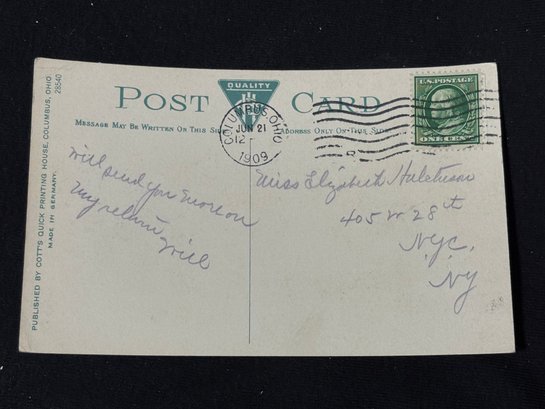 PUBLISHED BY COTT'S QUICK PRINTING HOUSE, COLUMBUS, OHIO.
MADE IN GERMANY.
28540
QUALITY
POST CARD
MESSAGE MAY BE WRITTEN ON THIS SIDE
ADDRESS ONLY ON THIS SIDE
COLUMBUS, OHIO
JUN 21
12
1909
U.S. POSTAGE
ONE CENT
Will send you more on
my return Will
Miss Elizabeth Hutchison
405 W 28th
Nyc,
NY